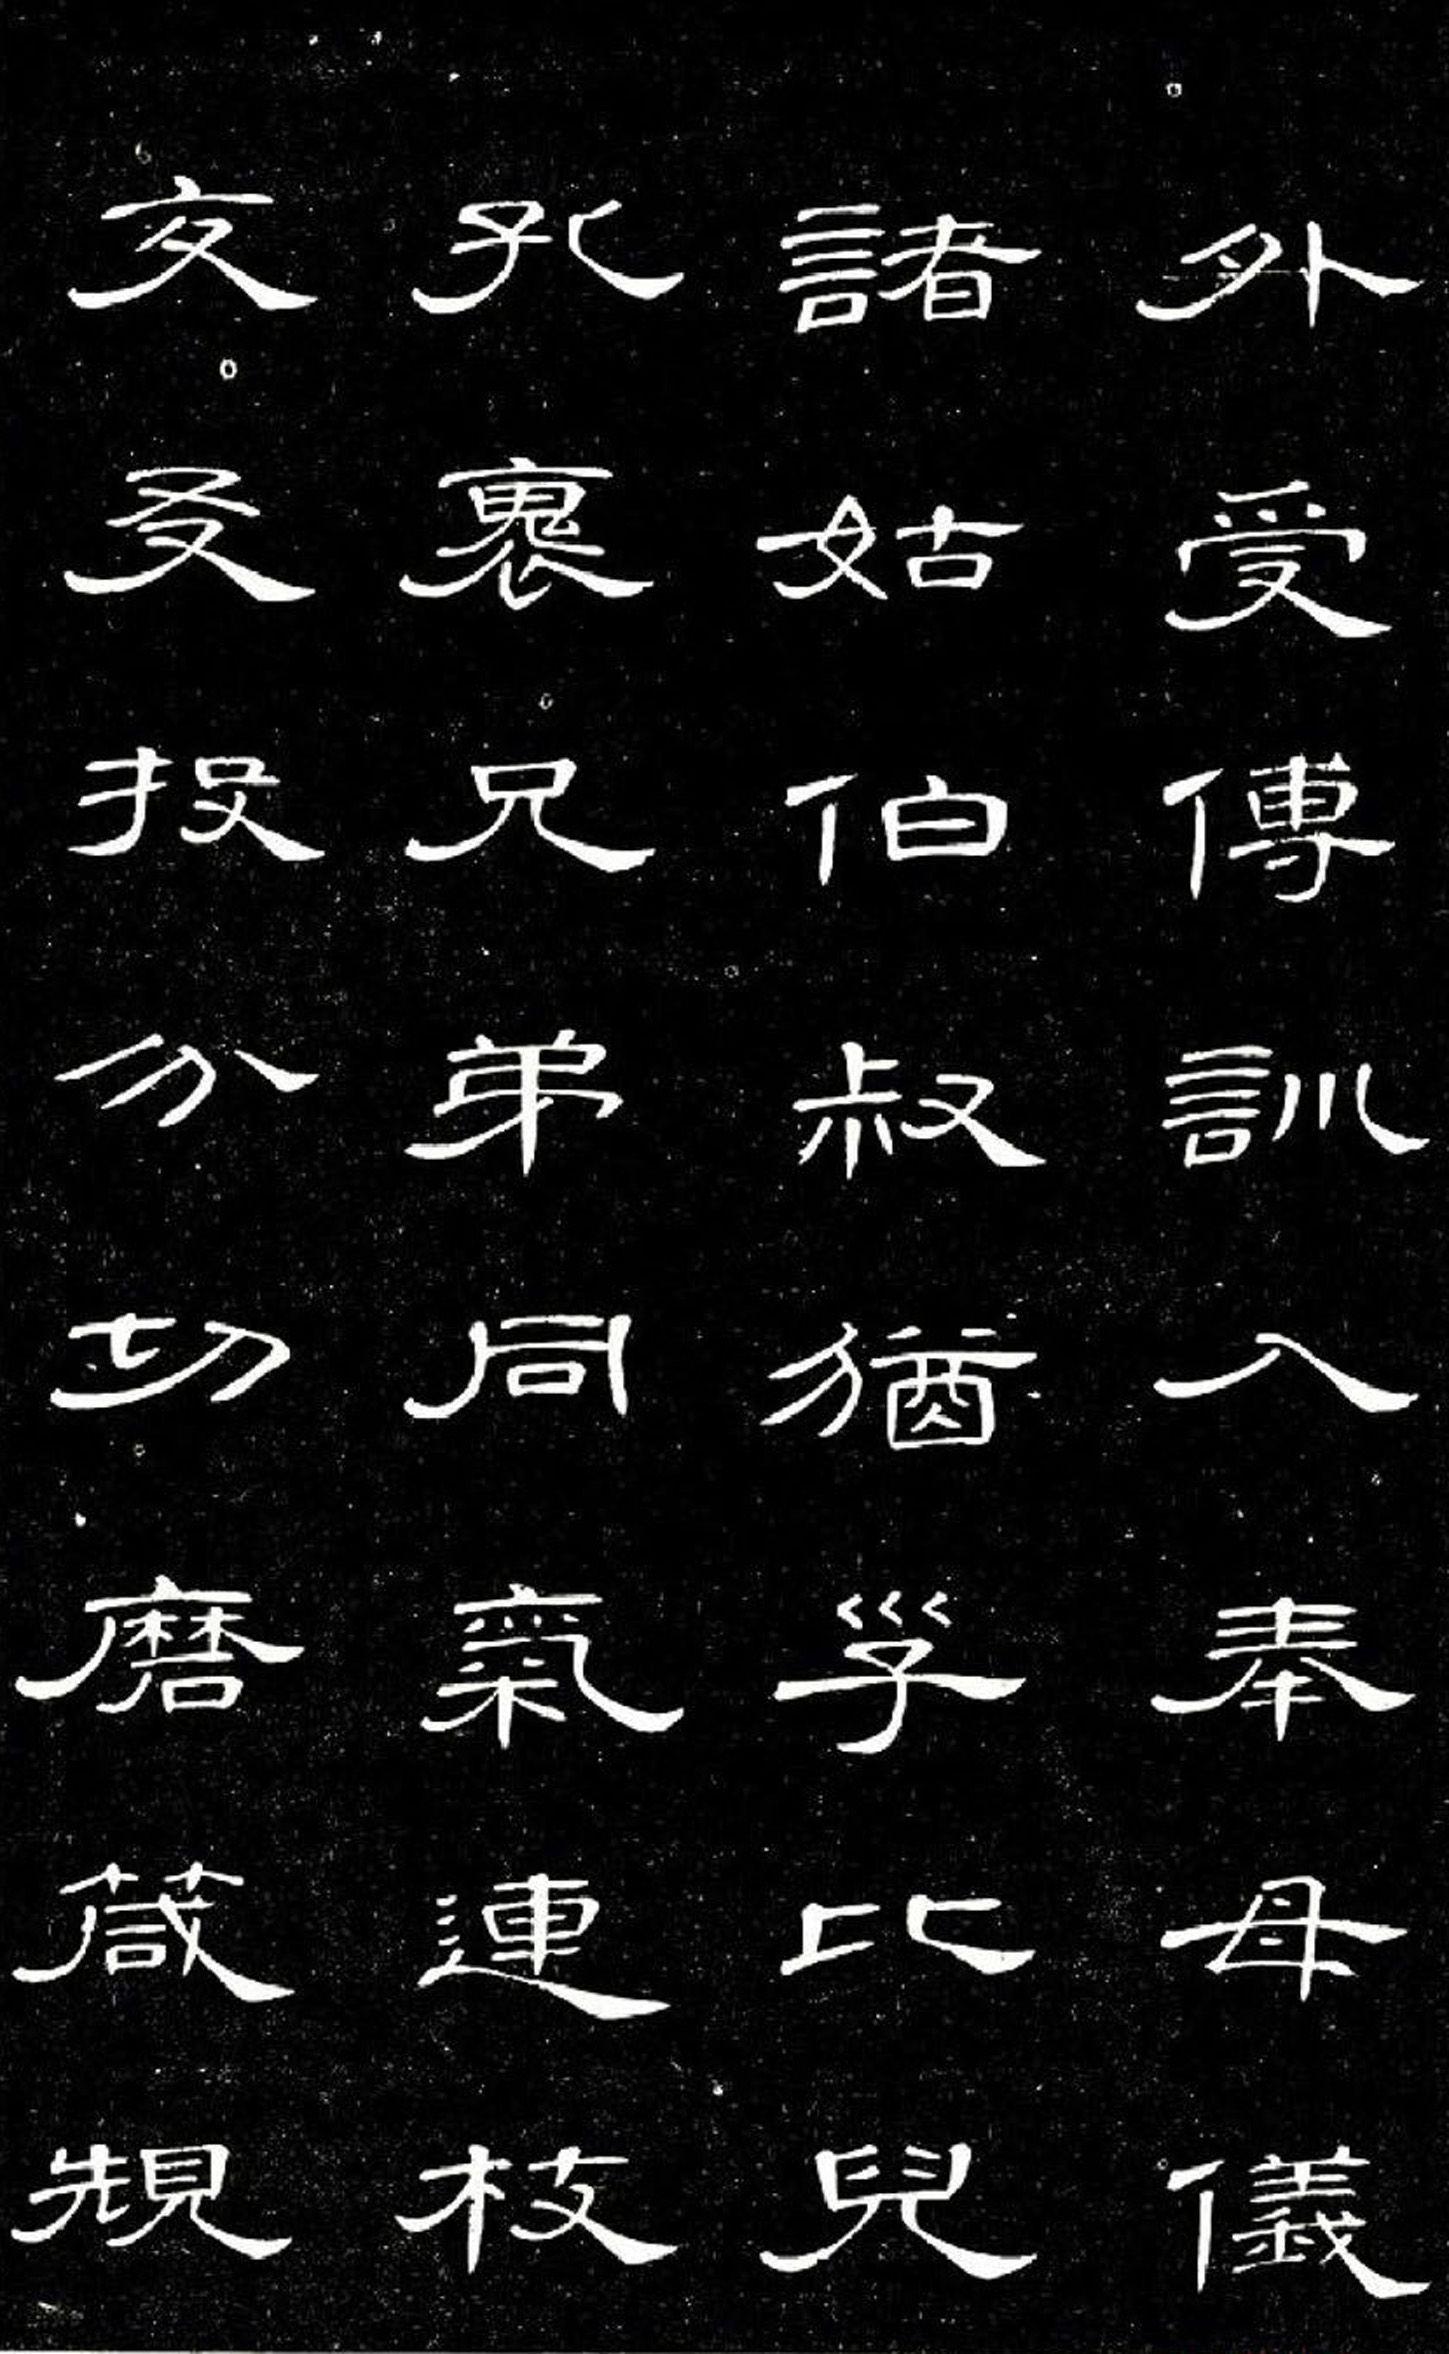 外受傅訓入奉母儀
諸姑伯叔猶子比兒
孔褱兄弟同氣連枝
交友投分切磨箴規